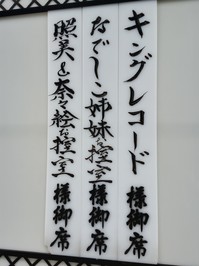 キングレコード 様御席
なでしこ姉妹控室 様御席
照美&奈々絵控室 様御席